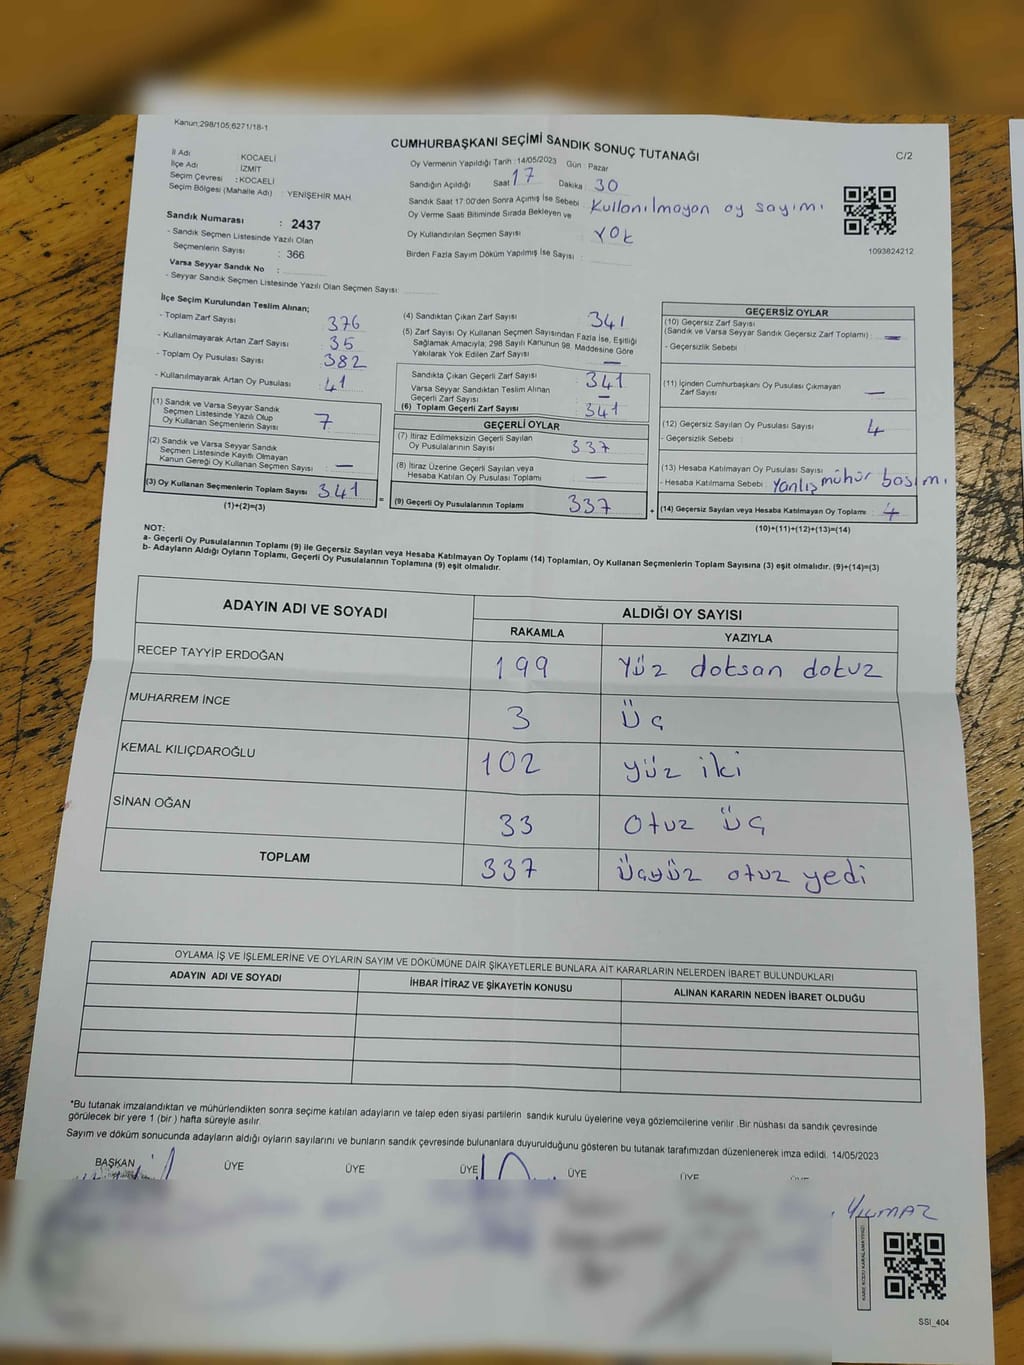 Kanun;298/105;6271/18-1
CUMHURBAŞKANI SEÇİMİ SANDIK SONUÇ TUTANAĞI
C/2
İl Adı : KOCAELİ
İlçe Adı : İZMİT
Seçim Çevresi : KOCAELİ
Seçim Bölgesi (Mahalle Adı) : YENİŞEHİR MAH.
Sandık Numarası : 2437
- Sandık Seçmen Listesinde Yazılı Olan
Seçmenlerin Sayısı : 366
Varsa Seyyar Sandık No :
- Seyyar Sandık Seçmen Listesinde Yazılı Olan Seçmen Sayısı:
Oy Vermenin Yapıldığı Tarih :14/05/2023 Gün : Pazar
Sandığın Açıldığı Saat 17 Dakika : 30
Sandık Saat 17:00'den Sonra Açımış İse Sebebi : Kullanılmayan oy sayımı
Oy Verme Saati Bitiminde Sırada Bekleyen ve
Oy Kullandırılan Seçmen Sayısı : YOK
Birden Fazla Sayım Döküm Yapılmış İse Sayısı :
1093824212
İlçe Seçim Kurulundan Teslim Alınan;
- Toplam Zarf Sayısı : 376
- Kullanılmayarak Artan Zarf Sayısı : 35
- Toplam Oy Pusulası Sayısı : 382
- Kullanılmayarak Artan Oy Pusulası : 41
(1) Sandık ve Varsa Seyyar Sandık
Seçmen Listesinde Yazılı Olup
Oy Kullanan Seçmenlerin Sayısı : 7
(2) Sandık ve Varsa Seyyar Sandık
Seçmen Listesinde Kayıtlı Olmayan
Kanun Gereği Oy Kullanan Seçmen Sayısı : —
(3) Oy Kullanan Seçmenlerin Toplam Sayısı : 341
(1)+(2)=(3)
=
(4) Sandıktan Çıkan Zarf Sayısı : 341
(5) Zarf Sayısı Oy Kullanan Seçmen Sayısından Fazla İse, Eşitliği
Sağlamak Amacıyla, 298 Sayılı Kanunun 98. Maddesine Göre
Yakılarak Yok Edilen Zarf Sayısı : —
Sandıkta Çıkan Geçerli Zarf Sayısı : 341
Varsa Seyyar Sandıktan Teslim Alınan
Geçerli Zarf Sayısı : —
(6) Toplam Geçerli Zarf Sayısı : 341
GEÇERLİ OYLAR
(7) İtiraz Edilmeksizin Geçerli Sayılan
Oy Pusulalarının Sayısı : 337
(8) İtiraz Üzerine Geçerli Sayılan veya
Hesaba Katılan Oy Pusulası Toplamı : —
(9) Geçerli Oy Pusulalarının Toplamı : 337
+
GEÇERSİZ OYLAR
(10) Geçersiz Zarf Sayısı
(Sandık ve Varsa Seyyar Sandık Geçersiz Zarf Toplamı) : —
- Geçersizlik Sebebi :
(11) İçinden Cumhurbaşkanı Oy Pusulası Çıkmayan
Zarf Sayısı : —
(12) Geçersiz Sayılan Oy Pusulası Sayısı : 4
- Geçersizlik Sebebi :
(13) Hesaba Katılmayan Oy Pusulası Sayısı :
- Hesaba Katılmama Sebebi : Yanlış mühür basımı
(14) Geçersiz Sayılan veya Hesaba Katılmayan Oy Toplamı : 4
(10)+(11)+(12)+(13)=(14)
NOT:
a- Geçerli Oy Pusulalarının Toplamı (9) ile Geçersiz Sayılan veya Hesaba Katılmayan Oy Toplamı (14) Toplamları, Oy Kullanan Seçmenlerin Toplam Sayısına (3) eşit olmalıdır. (9)+(14)=(3)
b- Adayların Aldığı Oyların Toplamı, Geçerli Oy Pusulalarının Toplamına (9) eşit olmalıdır.
ADAYIN ADI VE SOYADI ALDIĞI OY SAYISI
RAKAMLA YAZIYLA
RECEP TAYYİP ERDOĞAN 199 Yüz doksan dokuz
MUHARREM İNCE 3 Üç
KEMAL KILIÇDAROĞLU 102 yüz iki
SİNAN OĞAN 33 Otuz üç
TOPLAM 337 Üçyüz otuz yedi
OYLAMA İŞ VE İŞLEMLERİNE VE OYLARIN SAYIM VE DÖKÜMÜNE DAİR ŞİKAYETLERLE BUNLARA AİT KARARLARIN NELERDEN İBARET BULUNDUKLARI
ADAYIN ADI VE SOYADI İHBAR İTİRAZ VE ŞİKAYETİN KONUSU ALINAN KARARIN NEDEN İBARET OLDUĞU
*Bu tutanak imzalandıktan ve mühürlendikten sonra seçime katılan adayların ve talep eden siyasi partilerin sandık kurulu üyelerine veya gözlemcilerine verilir .Bir nüshası da sandık çevresinde
görülecek bir yere 1 (bir ) hafta süreyle asılır.
Sayım ve döküm sonucunda adayların aldığı oyların sayılarını ve bunların sandık çevresinde bulunanlara duyurulduğunu gösteren bu tutanak tarafımızdan düzenlenerek imza edildi. 14/05/2023
BAŞKAN ÜYE ÜYE ÜYE ÜYE ÜYE
YILMAZ
KARE KODU KARALAMAYINIZ
SSI_404